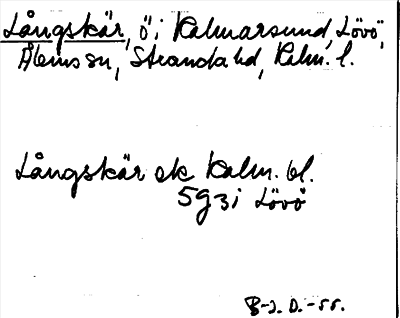 Långskär, ö i Kalmarsund, Lövö,
Ålems sn, Stranda hd, Kalm. l.
Långskär ek Kalm. bl.
5g3i Lövö
8-2. D.-55.